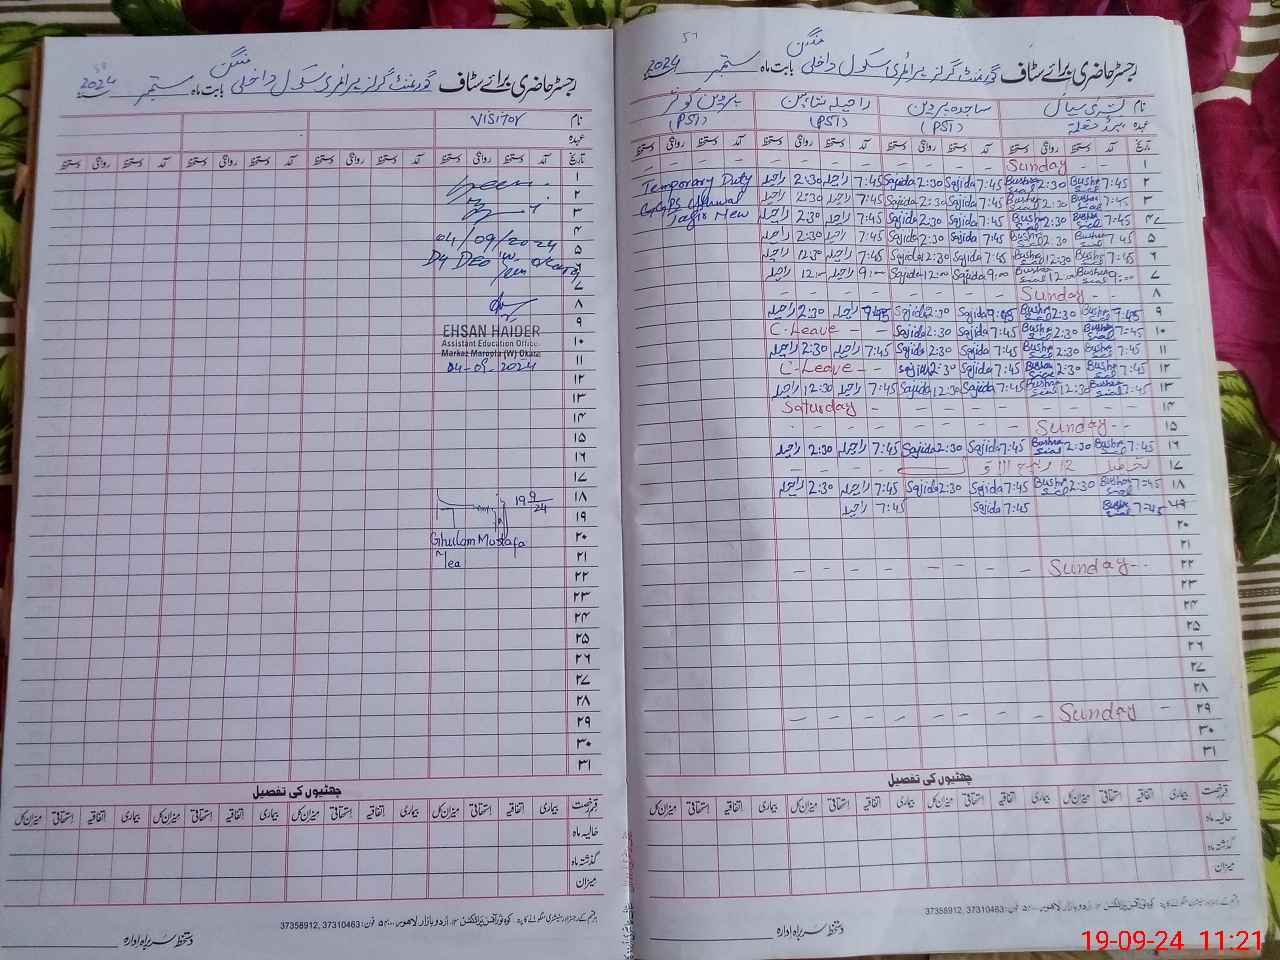 رجسٹر حاضری برائے سٹاف گورنمنٹ گرلز پرائمری سکول داخلی بابت ماہ ستمبر 2024
نام VISITOR
عہدہ
تاریخ آمد دستخط روانگی دستخط آمد دستخط روانگی دستخط آمد دستخط روانگی دستخط آمد دستخط روانگی دستخط
۱
۲
۳
۴ 04/09/2024
۵
۶
۷
۸
۹ EHSAN HAIDER
۱۰ Assistant Education Officer
Markaz Maropla (W) Okara
۱۱ 04-09-2024
۱۲
۱۳
۱۴
۱۵
۱۶
۱۷
۱۸ 19 9/24
۱۹
۲۰ Ghulam Mustafa
۲۱
۲۲
۲۳
۲۴
۲۵
۲۶
۲۷
۲۸
۲۹
۳۰
۳۱
چھٹیوں کی تفصیل
قسم رخصت بیماری اتفاقیہ استحقاقی میزان کل بیماری اتفاقیہ استحقاقی میزان کل بیماری اتفاقیہ استحقاقی میزان کل بیماری اتفاقیہ استحقاقی میزان کل
حالیہ ماہ
گذشتہ ماہ
میزان
فون: 37310463, 37358912
دستخط سربراہ ادارہ
رجسٹر حاضری برائے سٹاف گورنمنٹ گرلز پرائمری سکول داخلی بابت ماہ ستمبر 2024
نام بشریٰ سیال ساجدہ پروین راحیلہ شاہین پروین کوثر
عہدہ (PST) (PST) (PST)
تاریخ آمد دستخط روانگی دستخط آمد دستخط روانگی دستخط آمد دستخط روانگی دستخط آمد دستخط روانگی دستخط
۱ Sunday
۲ 7:45 Bushra Sial 2:30 Bushra Sial 7:45 Sajida 2:30 Sajida 7:45 راحیلہ 2:30 راحیلہ Temporary Duty
۳ 7:45 Bushra Sial 2:30 Bushra Sial 7:45 Sajida 2:30 Sajida 7:45 راحیلہ 2:30 راحیلہ
۴ 7:45 Bushra Sial 2:30 Bushra Sial 7:45 Sajida 2:30 Sajida 7:45 راحیلہ 2:30 راحیلہ
۵ 7:45 Bushra Sial 2:30 Bushra Sial 7:45 Sajida 2:30 Sajida 7:45 راحیلہ 2:30 راحیلہ
۶ 7:45 Bushra Sial 12:30 Bushra Sial 7:45 Sajida 12:30 Sajida 7:45 راحیلہ 12:30 راحیلہ
۷ 9:00 Bushra Sial 12:00 Bushra Sial 9:00 Sajida 12:00 Sajida 9:00 راحیلہ 12:00 راحیلہ
۸ Sunday
۹ 7:45 Bushra Sial 2:30 Bushra Sial Sajida 2:30 Sajida 7:45 راحیلہ 2:30 راحیلہ
۱۰ 7:45 Bushra Sial 2:30 Bushra Sial 7:45 Sajida 2:30 Sajida C-Leave
۱۱ 7:45 Bushra Sial 2:30 Bushra Sial 7:45 Sajida 2:30 Sajida 7:45 راحیلہ 2:30 راحیلہ
۱۲ 7:45 Bushra Sial 2:30 Bushra Sial 7:45 Sajida 2:30 Sajida C-Leave
۱۳ 7:45 Bushra Sial 12:30 Bushra Sial 7:45 Sajida 12:30 Sajida 7:45 راحیلہ 12:30 راحیلہ
۱۴ Saturday
۱۵ Sunday
۱۶ 7:45 Bushra Sial 2:30 Bushra Sial 7:45 Sajida 2:30 Sajida 7:45 راحیلہ 2:30 راحیلہ
۱۷ تعطیل 12 ربیع الاول
۱۸ 7:45 Bushra Sial 2:30 Bushra Sial 7:45 Sajida 2:30 Sajida 7:45 راحیلہ 2:30 راحیلہ
۱۹ 7:45 Bushra Sial 7:45 Sajida 7:45 راحیلہ
۲۰
۲۱
۲۲ Sunday
۲۳
۲۴
۲۵
۲۶
۲۷
۲۸
۲۹ Sunday
۳۰
۳۱
چھٹیوں کی تفصیل
قسم رخصت بیماری اتفاقیہ استحقاقی میزان کل بیماری اتفاقیہ استحقاقی میزان کل بیماری اتفاقیہ استحقاقی میزان کل بیماری اتفاقیہ استحقاقی میزان کل
حالیہ ماہ
گذشتہ ماہ
میزان
فون: 37310463, 37358912
دستخط سربراہ ادارہ
19-09-24 11:21